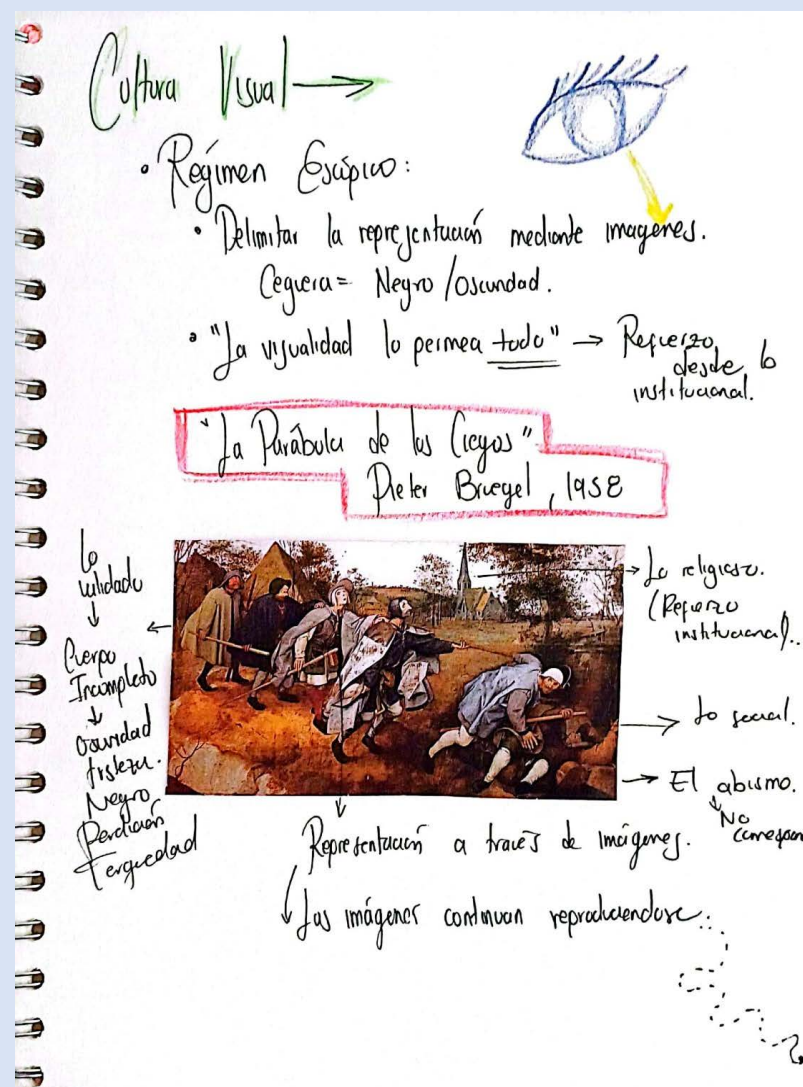 Cultura Visual
• Regimen Escópico:
• Delimitar la representación mediante imagenes.
Ceguera = Negro / Oscuridad.
• "La visualidad lo permea todo" → Refuerzo
desde lo
institucional.
"La Parábola de los Ciegos"
Pieter Bruegel, 1958
Lo
Cuerpo
Incompleto
Oscuridad
tristeza.
Negro
Perdición
Terquedad
→ Lo religioso.
(Refuerzo
institucional)..
→ Lo social.
→ El abismo.
No
Representación a través de imágenes.
Las imágenes continuan reproduciendose...